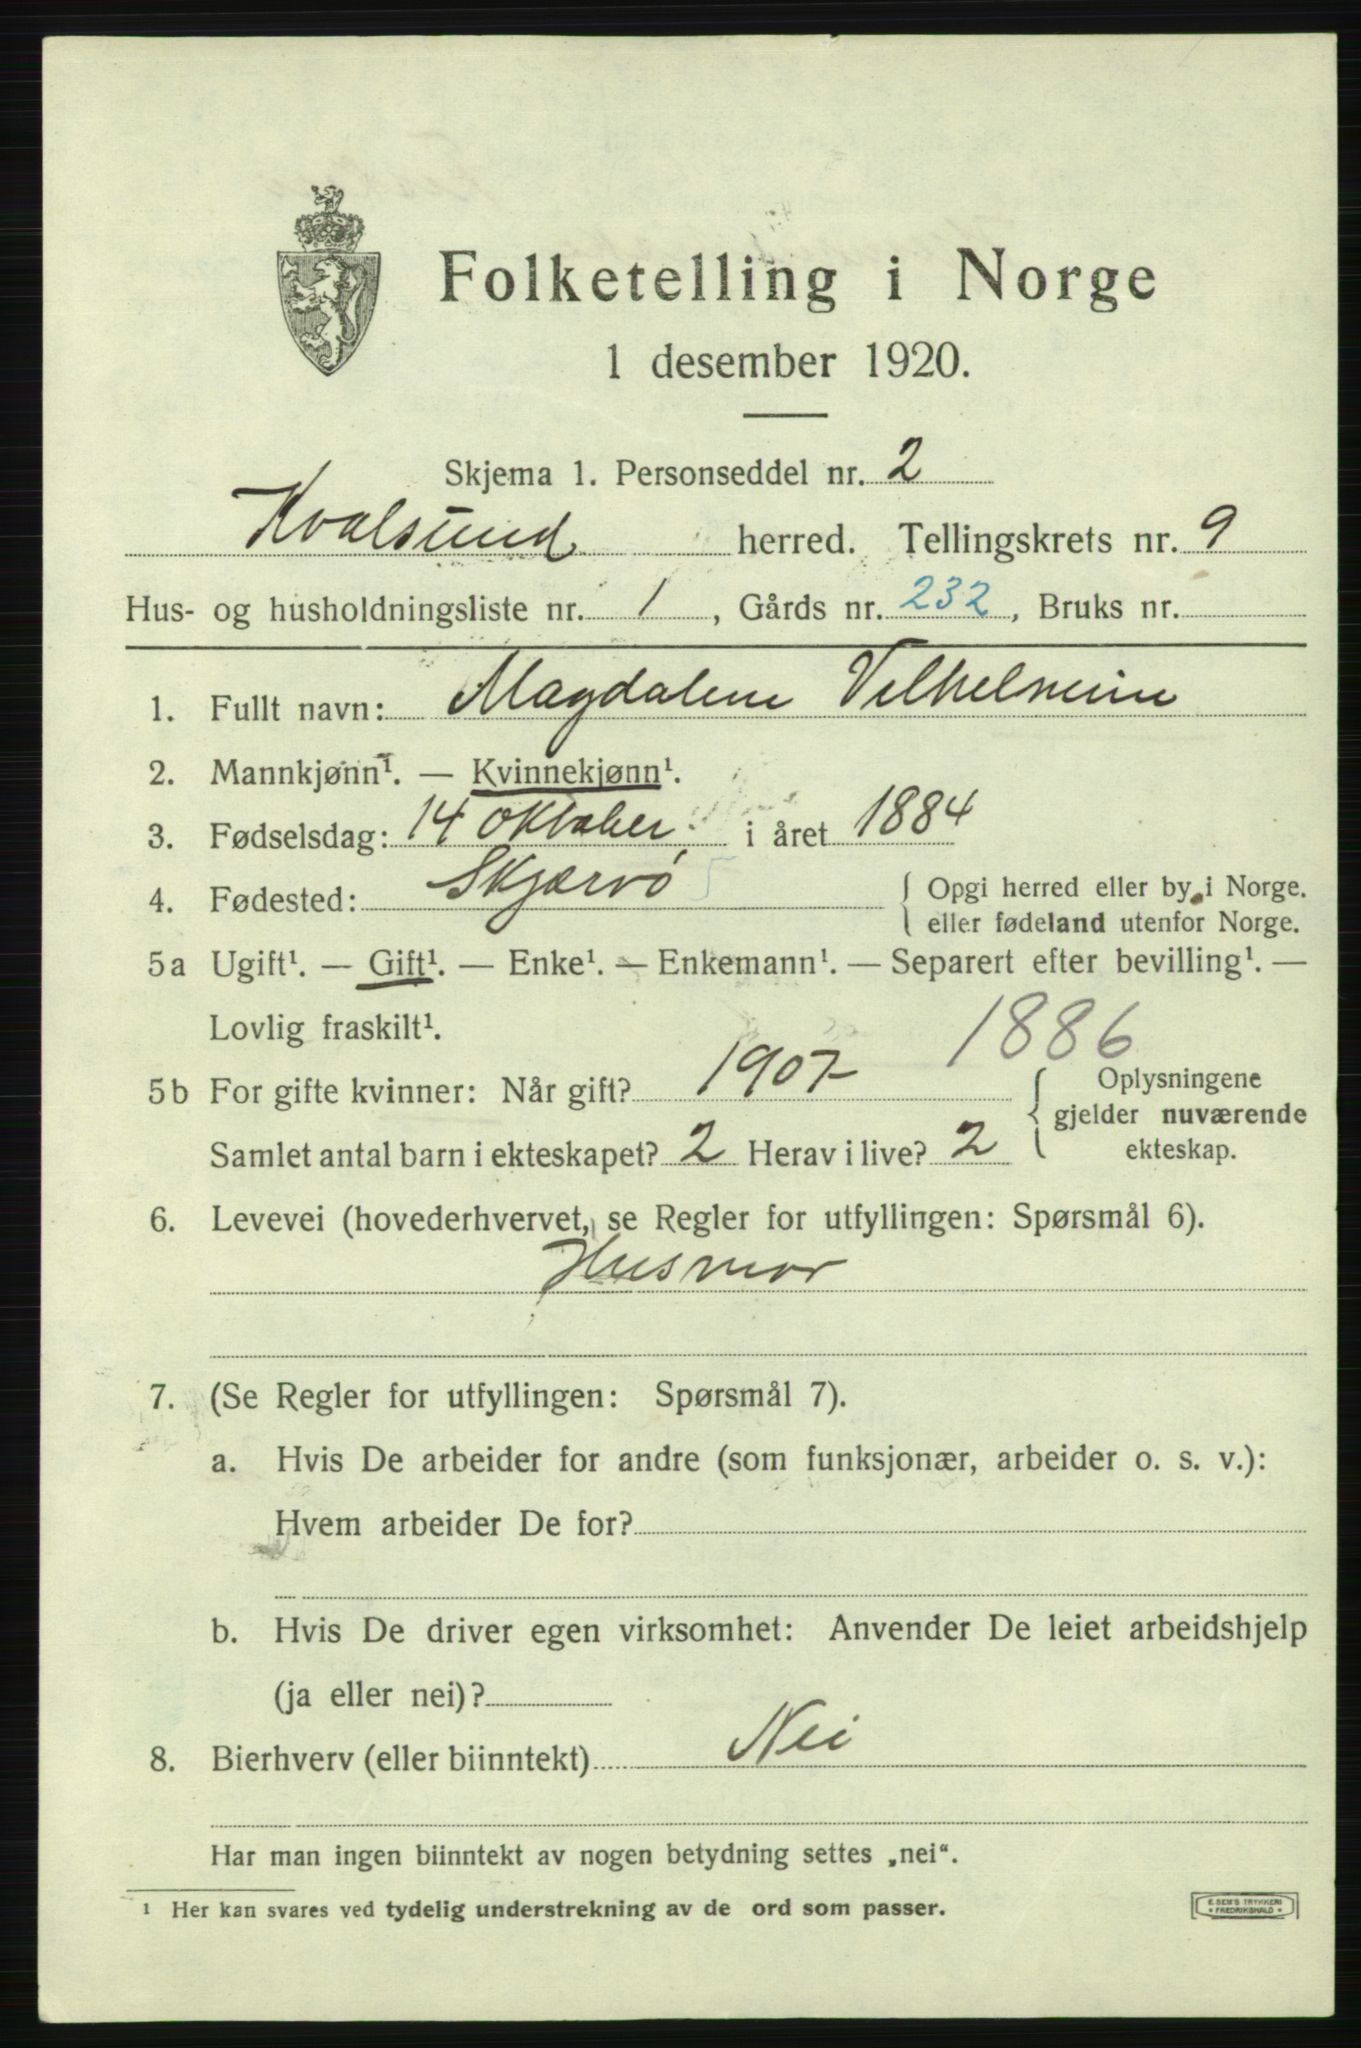 Folketelling i Norge
1 desember 1920.
Skjema 1. Personseddel nr. 2
Kvalsund herred. Tellingskrets nr. 9
Hus- og husholdningsliste nr. 1, Gårds nr. 232, Bruks nr.
1. Fullt navn: Magdalene Vilhelmine
2. Mannkjønn¹. — Kvinnekjønn¹.
3. Fødselsdag: 14 Oktober i året 1884
4. Fødested: Skjærvö 5 { Opgi herred eller by i Norge.
{ eller fødeland utenfor Norge.
5a Ugift¹. — Gift¹. — Enke¹. — Enkemann¹. — Separert efter bevilling¹. —
Lovlig fraskilt¹. 1886
5b For gifte kvinner: Når gift? 1907 { Oplysningene
gjelder nuværende
Samlet antal barn i ekteskapet? 2 Herav i live? 2 ekteskap.
6. Levevei (hovederhvervet, se Regler for utfyllingen: Spørsmål 6).
Husmor
7. (Se Regler for utfyllingen: Spørsmål 7).
a. Hvis De arbeider for andre (som funksjonær, arbeider o. s. v.):
Hvem arbeider De for?
b. Hvis De driver egen virksomhet: Anvender De leiet arbeidshjelp
(ja eller nei)?
8. Bierhverv (eller biinntekt) Nei
Har man ingen biinntekt av nogen betydning settes „nei“.
¹ Her kan svares ved tydelig understrekning av de ord som passer.
E. SEM'S TRYKKERI
FREDRIKSHALD